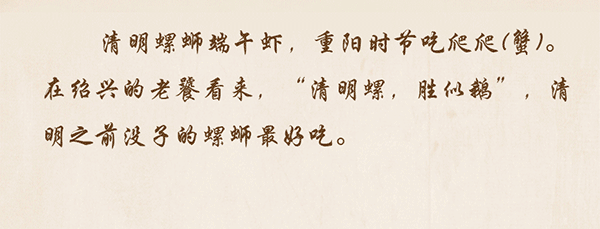 清明螺蛳端午虾，重阳时节吃爬爬(蟹)。
在绍兴的老饕看来，“清明螺，胜似鹅”，清
明之前没子的螺蛳最好吃。